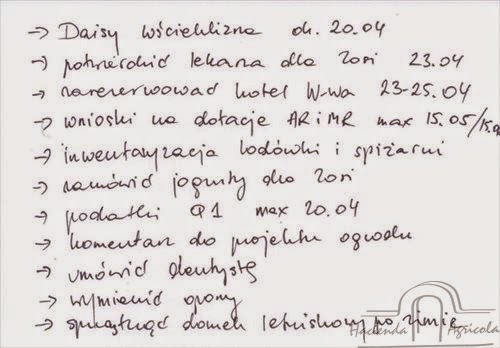 → Daisy wścieklizna ok. 20.04
→ potwierdzić lekarza dla Zosi 23.04
→ zarezerwować hotel W-wa 23-25.04
→ wnioski na dotacje ARiMR max 15.05/15.0
→ inwentaryzacja lodówki i spiżarni
→ zamówić jogurty dla Zosi
→ podatki Q1 max 20.04
→ komentarz do projektu ogrodu
→ umówić dentystę
→ wymienić opony
→ sprzątnąć domek letniskowy po zimie
Hacienda Agricola